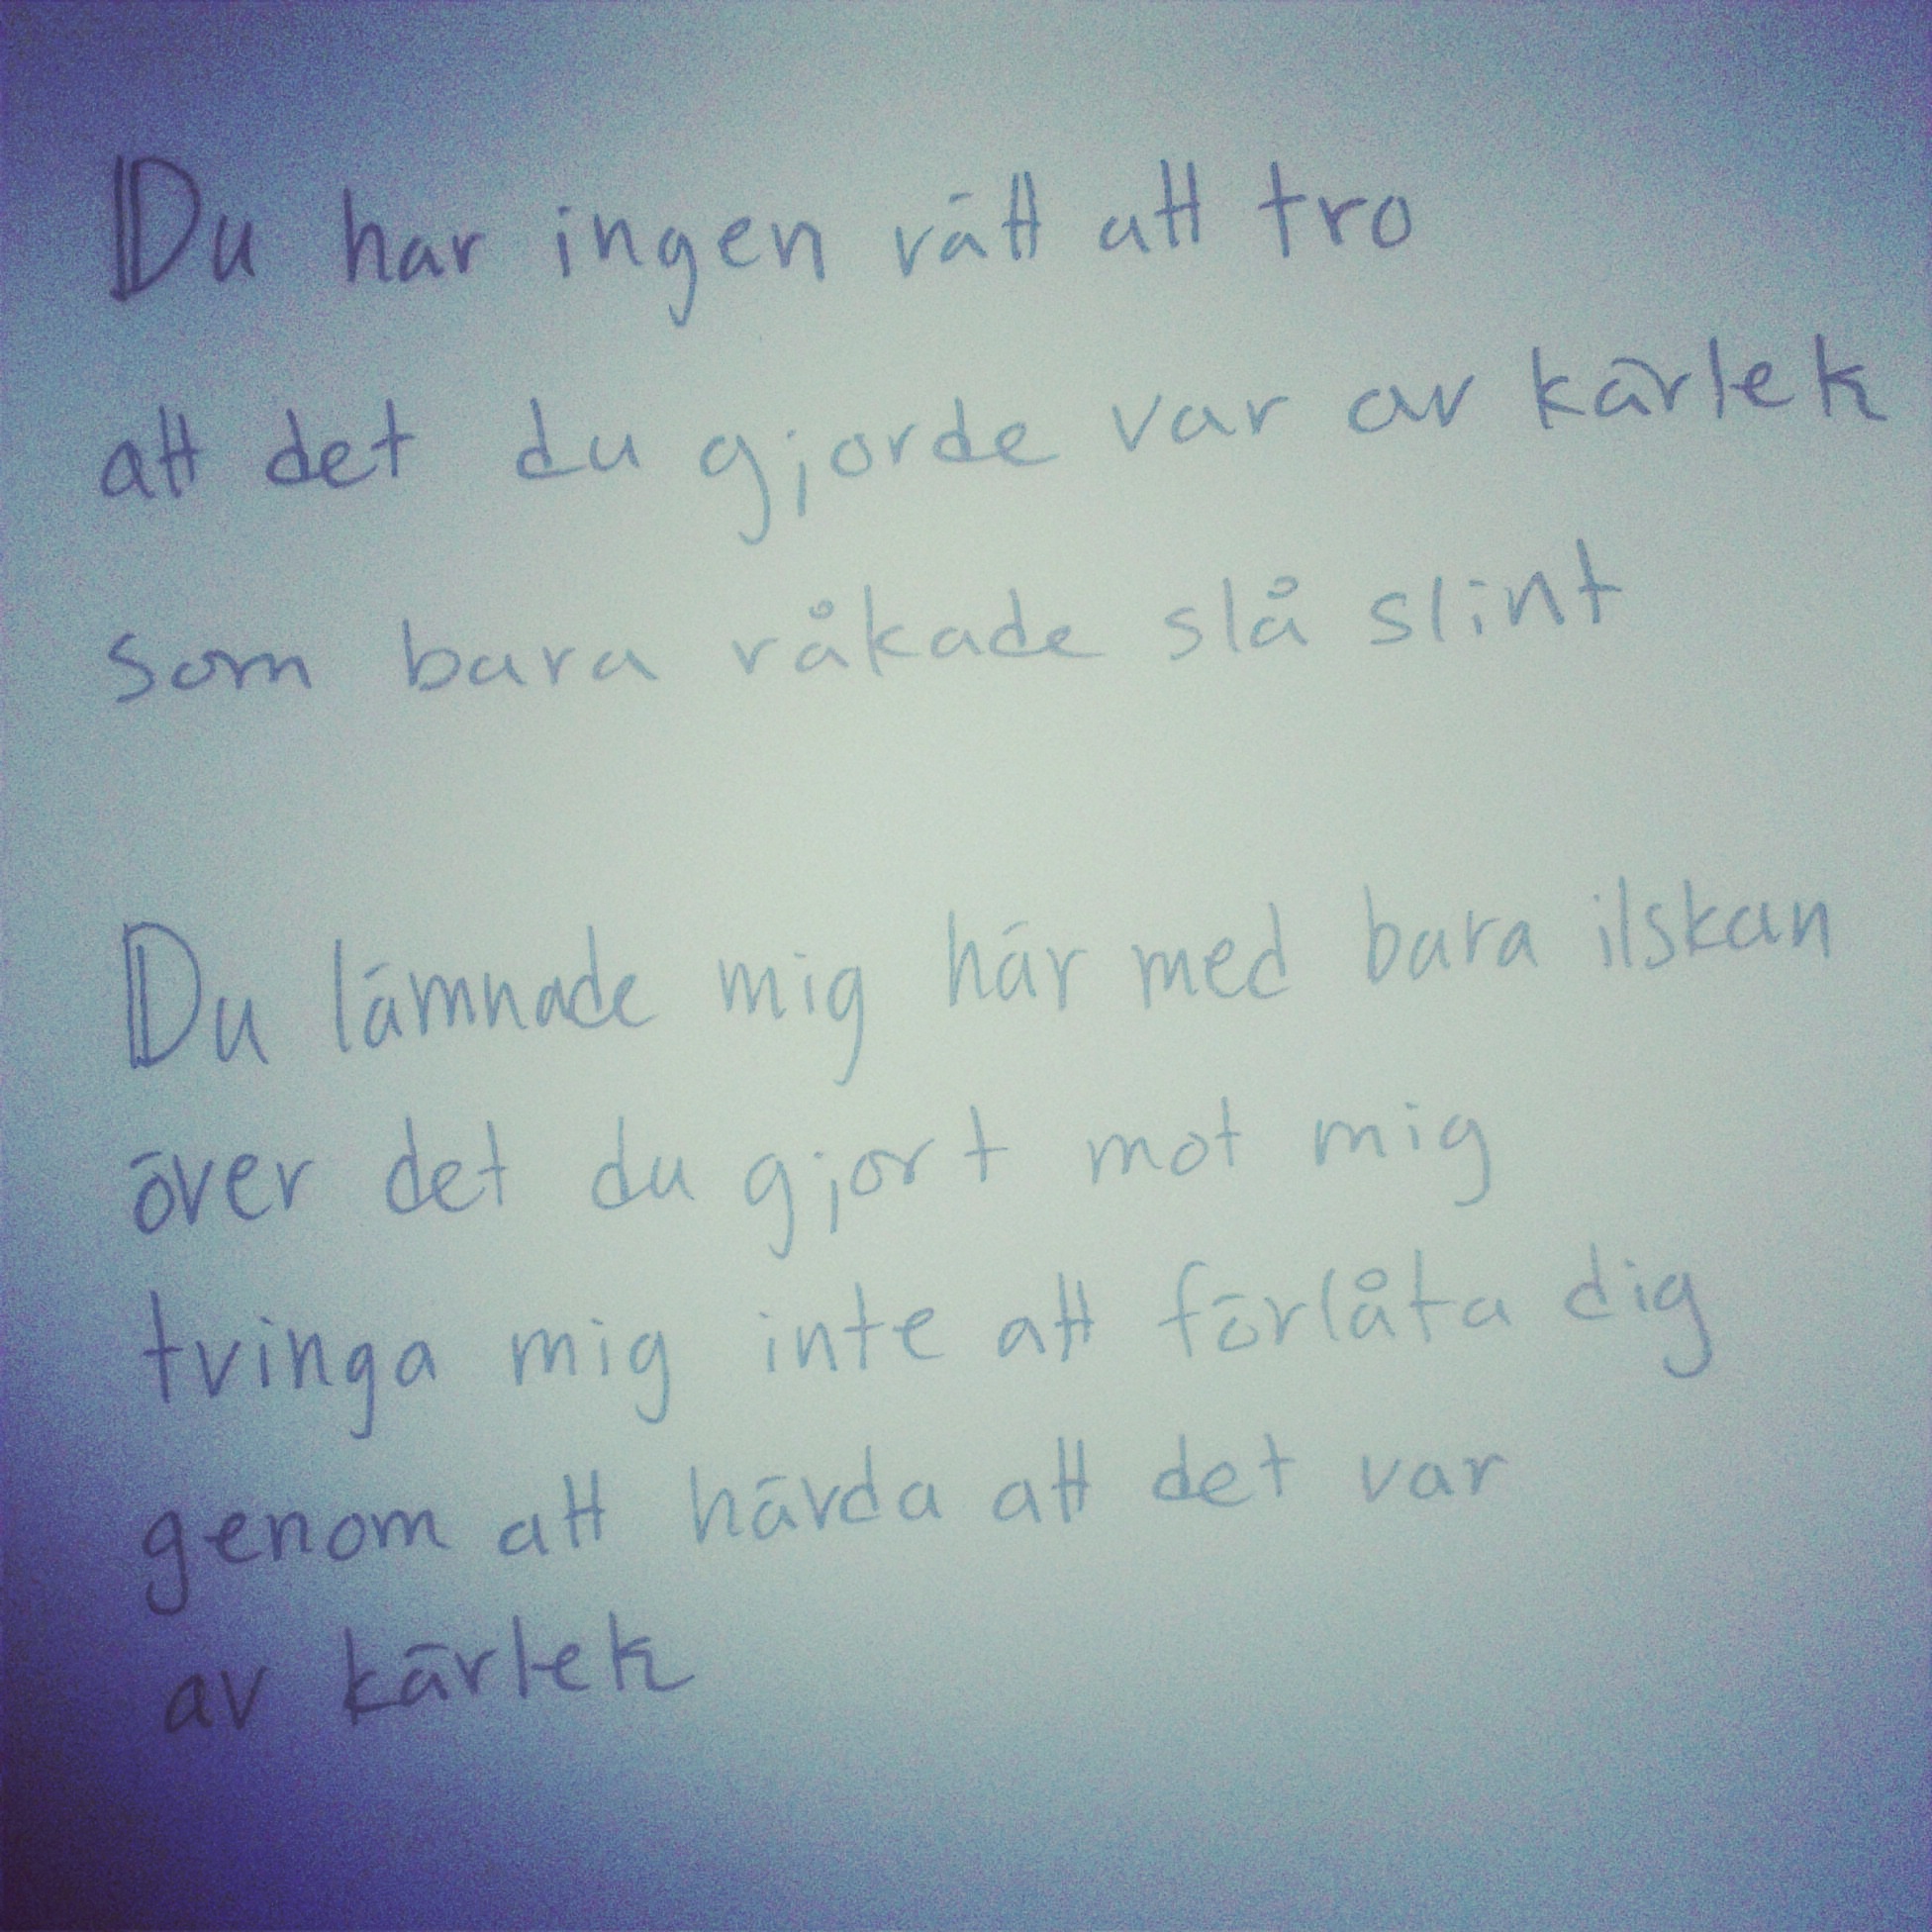 Du har ingen rätt att tro
att det du gjorde var av kärlek
som bara råkade slå slint
Du lämnade mig här med bara ilskan
över det du gjort mot mig
tvinga mig inte att förlåta dig
genom att hävda att det var
av kärlek